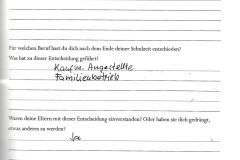 Für welchen Beruf hast du dich nach dem Ende deiner Schulzeit entschieden?
Was hat zu dieser Entscheidung geführt?
Kaufm. Angestellte
Familienbetrieb
Waren deine Eltern mit dieser Entscheidung einverstanden? Oder haben sie dich gedrängt,
etwas anderes zu werden?
Ja